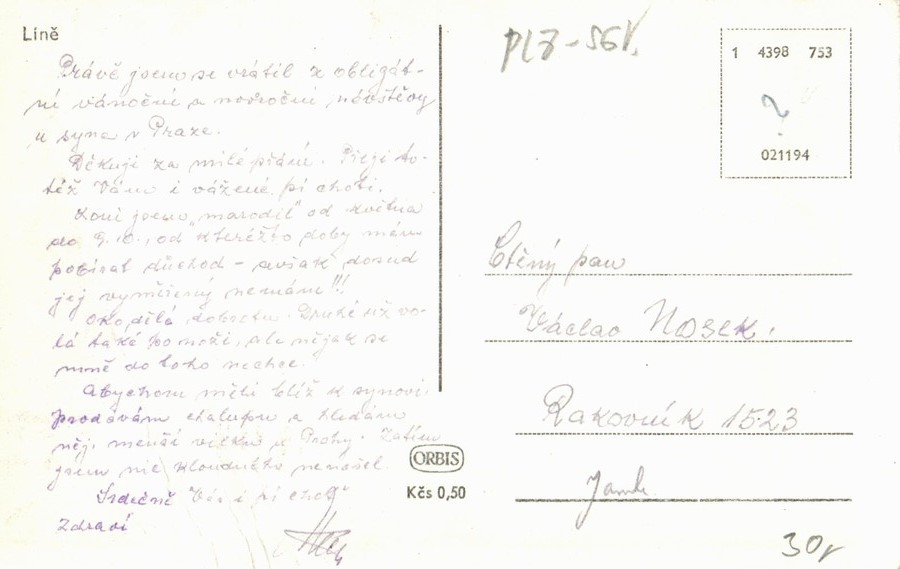 Líně
Právě jsem se vrátil z obligát-
ní vánoční a novoroční návštěvy
u syna v Praze.
Děkuji za milé přání. Přeji to-
též Vám i vážené pí choti.
Loni jsem "marodil" od května
do 9.10., od kteréžto doby mám
pobírat důchod - avšak dosud
jej vyměřený nemám!!!
Oko dělá dobrotu. Druhé již vo-
lá také po noži, ale nějak se
mně do toho nechce.
Abychom měli blíž k synovi,
prodávám chalupu a hledám
něj. menší vilku u Prahy. Zatím
jsem nic kloudného nenašel.
Srdečně Vás i pí choť
zdraví
ORBIS
Kčs 0,50
PLZ-
1 4398 753
?
021194
Ctěný pan
Václav Nosek.
Rakovník 1523
30,